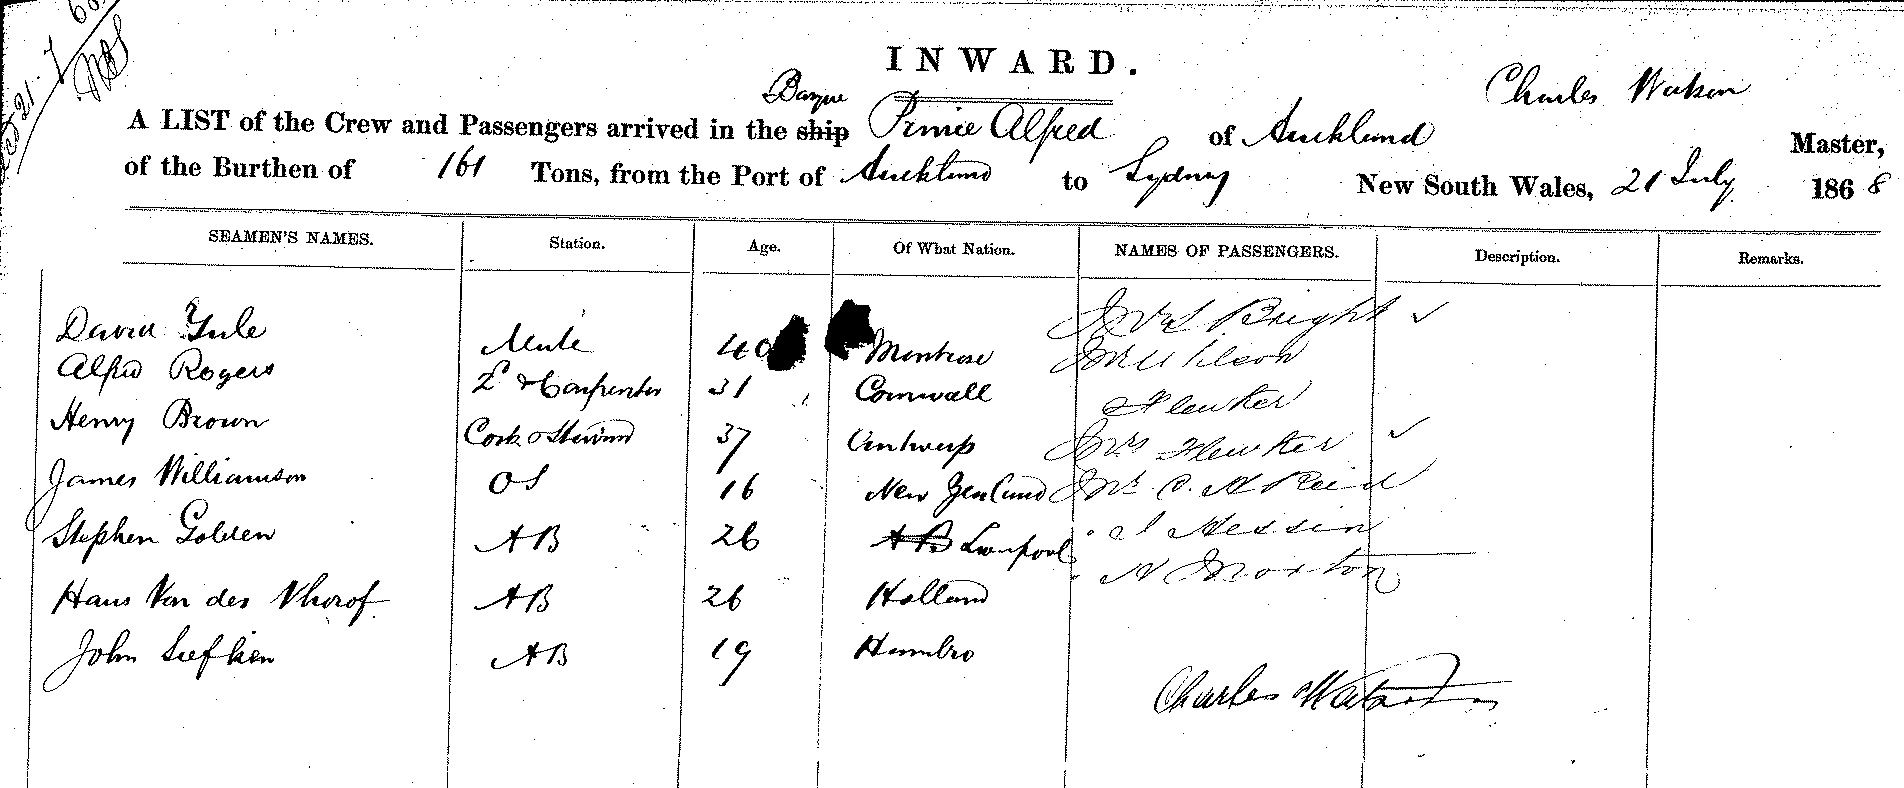 21.7
INWARD.
Charles Watson
Barque
A LIST of the Crew and Passengers arrived in the ship Prince Alfred of Auckland Master,
of the Burthen of 161 Tons, from the Port of Auckland to Sydney New South Wales, 21 July 1868
SEAMEN'S NAMES. Station. Age. Of What Nation. NAMES OF PASSENGERS. Description. Remarks.
David Yule Mate 40 Montrose Mrs Bright ✓
Alfred Rogers & Carpenter 31 Cornwall Mr Wilson
Henry Brown Cook & Steward 37 Antwerp Flewker
Mrs Flewker ✓
James Williamson OS 16 New Zealand Mr C. A Reid
Stephen Golden AB 26 AB Liverpool " J Hessin
Hans Van der AB 26 Holland " Morton
John AB 19 Hambro
Charles Watson